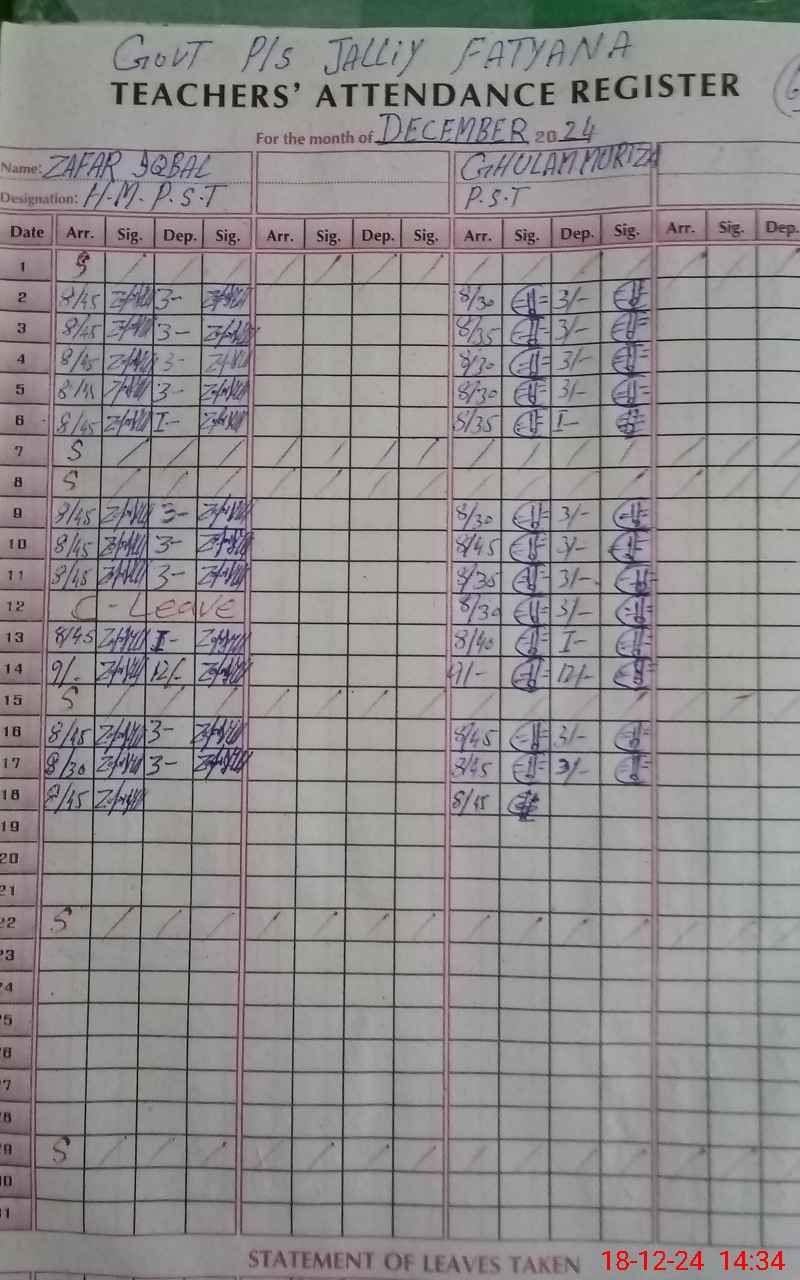 GOVT P/S JALLIY FATYANA
TEACHERS' ATTENDANCE REGISTER
For the month of DECEMBER 2024
Name: ZAFAR IQBAL GHULAM MURTZA
Designation: H.M. P.S.T P.S.T
Date Arr. Sig. Dep. Sig. Arr. Sig. Dep. Sig. Arr. Sig. Dep. Sig. Arr. Sig. Dep.
1 S
2 8/45 3- 8/30 3/-
3 8/45 3- 8/35 3/-
4 8/45 3- 8/30 3/-
5 8/45 3- 8/30 3/-
6 8/45 I- 8/35 I-
7 S
8 S
9 8/45 3- 8/30 3/-
10 8/45 3- 8/45 3/-
11 8/45 3- 8/35 3/-
12 C-Leave 8/30 3/-
13 8/45 I- 8/40 I-
14 9/- 12/- 9/- 12/-
15 S
16 8/45 3- 8/45 3/-
17 8/30 3- 8/45 3/-
18 8/45 8/45
19
20
21
22 S
23
24
25
26
27
28
29 S
30
31
STATEMENT OF LEAVES TAKEN
18-12-24 14:34